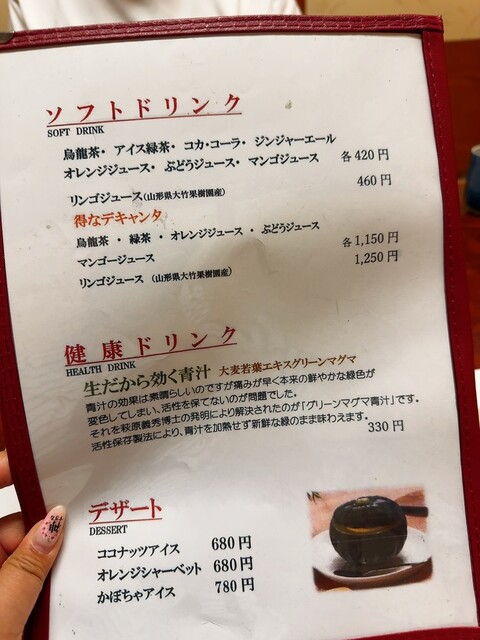 ソフトドリンク
SOFT DRINK
烏龍茶・ アイス緑茶・ コカ・コーラ・ ジンジャーエール
オレンジジュース・ ぶどうジュース・ マンゴジュース 各 420 円
リンゴジュース(山形県大竹果樹園産) 460 円
得なデキャンタ
烏龍茶 ・ 緑茶 ・ オレンジジュース ・ ぶどうジュース 各 1,150 円
マンゴージュース 1,250 円
リンゴジュース (山形県大竹果樹園産)
健康ドリンク
HEALTH DRINK
生だから効く青汁 大麦若葉エキスグリーンマグマ
青汁の効果は素晴らしいのですが痛みが早く本来の鮮やかな緑色が
変色してしまい、活性を保てないのが問題でした。
それを萩原義秀博士の発明により解決されたのが「グリーンマグマ青汁」です。
活性保存製法により、青汁を加熱せず新鮮な緑のまま味わえます。
330 円
デザート
DESSERT
ココナッツアイス 680 円
オレンジシャーベット 680 円
かぼちゃアイス 780 円